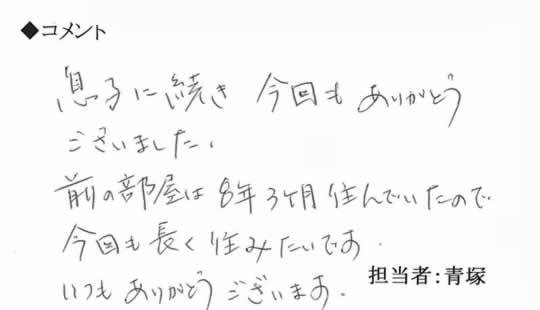 ◆コメント
息子に続き 今回も ありがとう
ございました.
前の部屋は 8年3ヶ月 住んでいたので
今回も長く 住みたいです.
担当者:青塚
いつも ありがとう ございます.